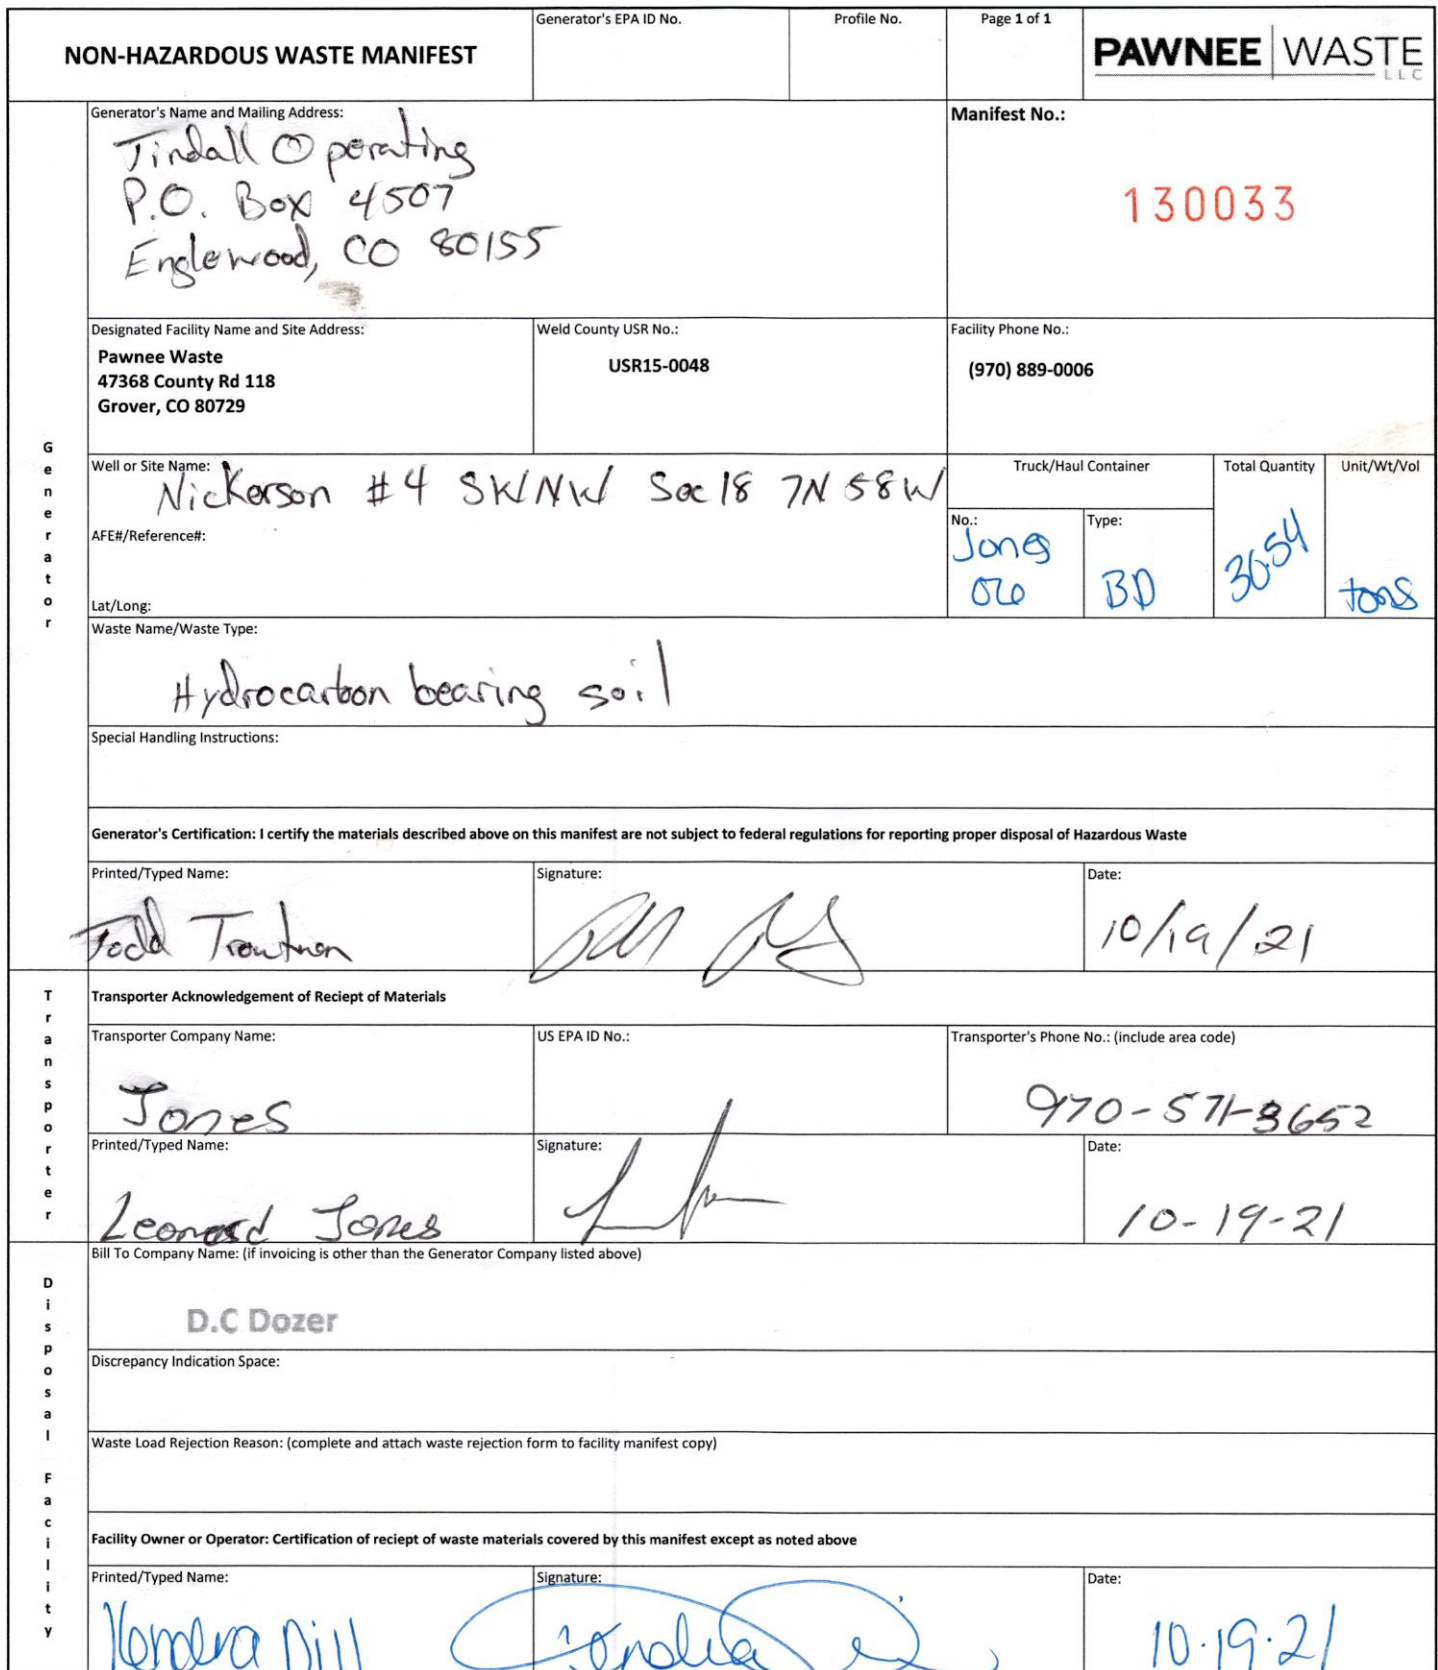 NON-HAZARDOUS WASTE MANIFEST
Generator's EPA ID No.
Profile No.
Page 1 of 1
PAWNEE WASTE
LLC
Generator
Generator's Name and Mailing Address:
Tindall Operating
P.O. Box 4507
Englewood, CO 80155
Manifest No.:
130033
Designated Facility Name and Site Address:
Pawnee Waste
47368 County Rd 118
Grover, CO 80729
Weld County USR No.:
USR15-0048
Facility Phone No.:
(970) 889-0006
Well or Site Name: Nickerson #4 SWNW Sec 18 7N 58W
AFE#/Reference#:
Lat/Long:
Truck/Haul Container
No.:
Jones
Type:
BD
Total Quantity
30.54
Unit/Wt/Vol
tons
Waste Name/Waste Type:
Hydrocarbon bearing soil
Special Handling Instructions:
Generator's Certification: I certify the materials described above on this manifest are not subject to federal regulations for reporting proper disposal of Hazardous Waste
Printed/Typed Name:
Todd Troutman
Signature:
Date:
10/19/21
Transporter
Transporter Acknowledgement of Reciept of Materials
Transporter Company Name:
Jones
US EPA ID No.:
Transporter's Phone No.: (include area code)
970-571-3652
Printed/Typed Name:
Leonard Jones
Signature:
Date:
10-19-21
Disposal Facility
Bill To Company Name: (if invoicing is other than the Generator Company listed above)
D.C Dozer
Discrepancy Indication Space:
Waste Load Rejection Reason: (complete and attach waste rejection form to facility manifest copy)
Facility Owner or Operator: Certification of reciept of waste materials covered by this manifest except as noted above
Printed/Typed Name:
Kendra Dill
Signature:
Date:
10.19.21